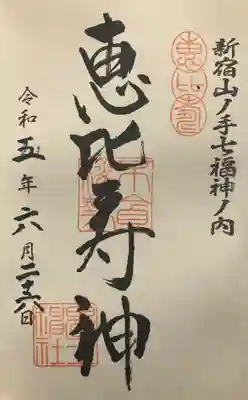 新宿山ノ手七福神ノ内
恵比寿
恵比寿神
令和五年六月二十六日